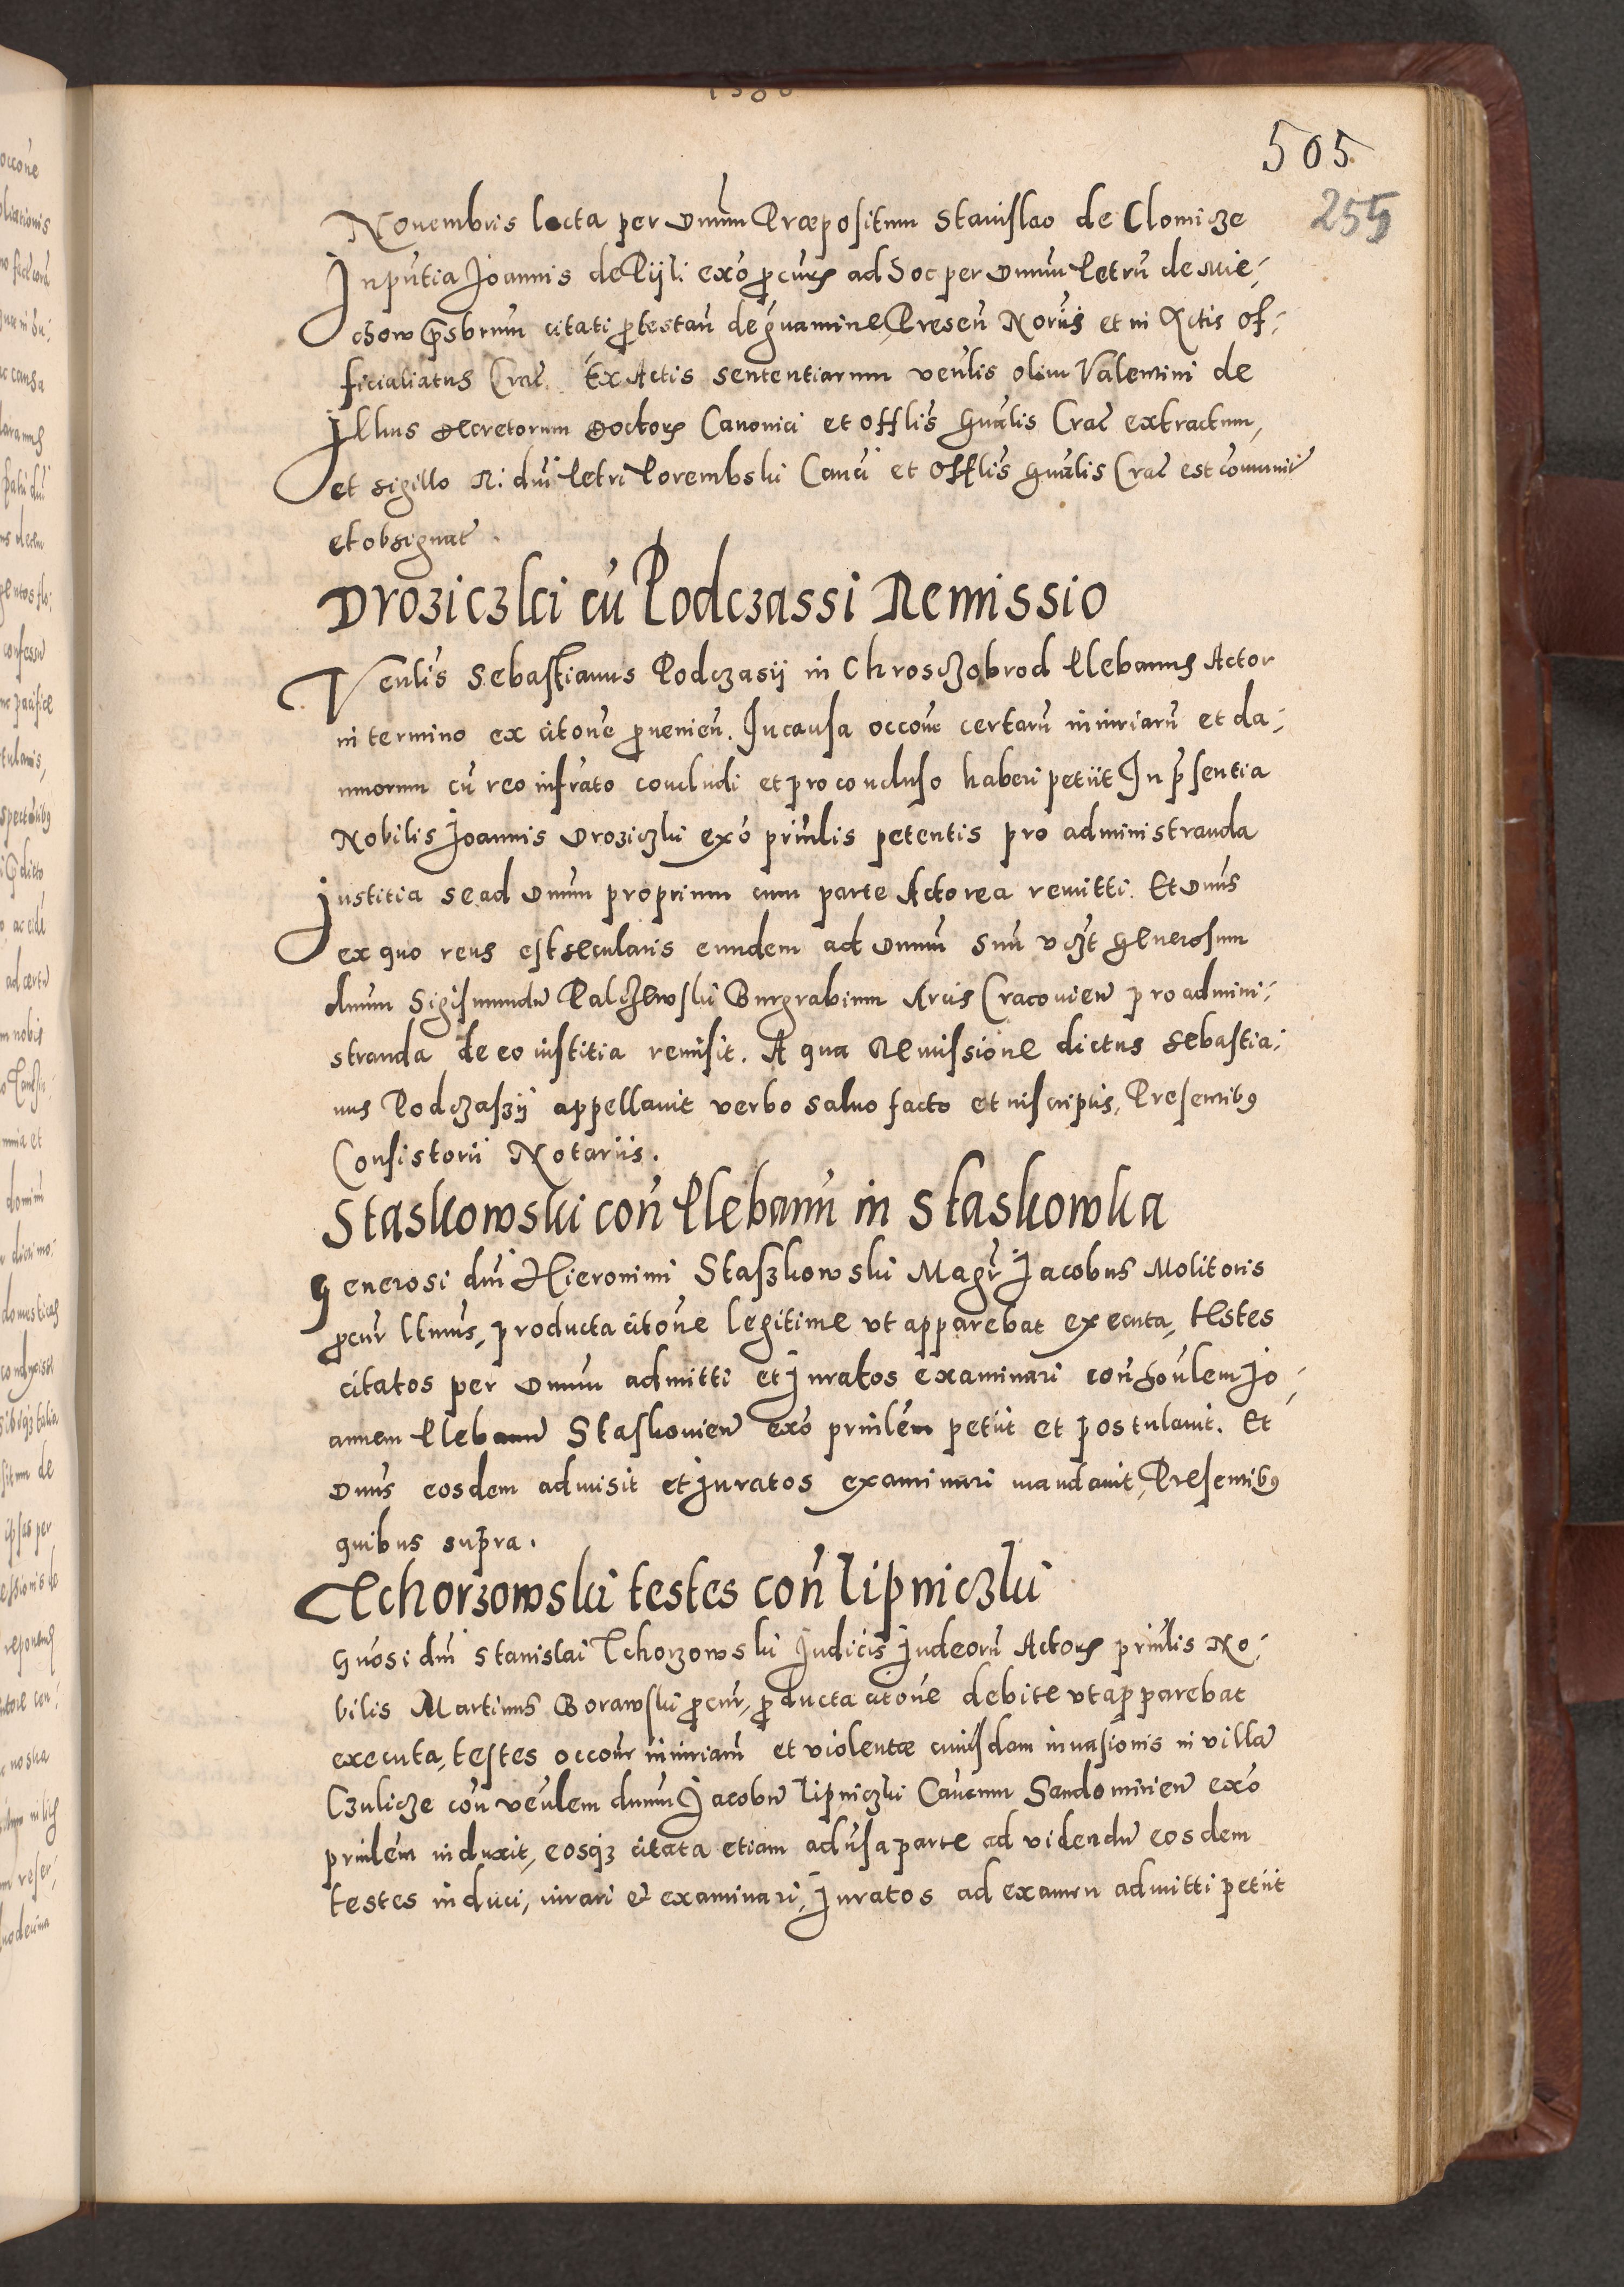 505
255
Nouembris lecta per Dnum Præpositum Stanislao de Clomicze
In pntia Joannis de Pijli exo procurs ad hoc per Dnum Petru de Mie-
chow Prsbrum citati protestan de gramine, Presen Noriis et in Actis of-
ficialiatus Crac. Ex Actis sententiarum venlis olim Valentini de
Illius Decretorum Doctors Canonici et Offlis Gnalis Crac extractum,
et sigillo R. dni Petri Porembski Canci et Offlis Gnalis Crac est comunit
et obsignat.
Droziczki cu Podczassi Remissio
Venlis Sebastianus Podczasij in Chrosczobrod Plebanus Actor
in termino ex citone prouenien. In causa occone certaru iniuriaru et da-
mnorum cu reo infrato concludi et pro concluso haberi petiit In prsentia
Nobilis Joannis Droziczki exo prinlis petentis pro administranda
Justitia se ad Dnum proprium cum parte Actorea remitti. Et Dnus
ex quo reus est secularis eundem ad Dnum suu vczt Generosum
dnum Sigismundu Palczewski Burgrabium Arcis Cracouien pro admini-
stranda de eo iustitia remisit. A qua Remissione dictus Sebastia-
nus Podczaszij appellauit verbo saluo facto et in scriptis, Presentibus
Consistorii Notariis.
Staskowski con Plebanu in Staskowka
Generosi dni Hieronimi Staszkowski Magr Jacobus Molitoris
procur ltimus, producta citone legitime vt apparebat executa, testes
citatos per Dnum admitti et Juratos examinari con honlem Jo-
annem Plebanu Staskouien exo prinlem petiit et postulauit. Et
Dnus eosdem admisit et Juratos examinari mandauit, Presentibus
quibus supra.
Tchorzowski testes con Lipniczki
Gnosi dni Stanislai Tchorzowski Judicis Judeoru Actors prinlis No-
bilis Martinus Borawski procur, producta citone debite vt apparebat
executa, testes occone iniuriaru et violentæ cuiusdam inuasionis in villa
Czulicze con venlem dnum Jacobu Lipniczki Cancum Sandomirien exo
prinlem induxit, eosqz citata etiam aduersa parte ad videndu eosdem
testes induci, iurari et examinari, Juratos ad examen admitti petiit